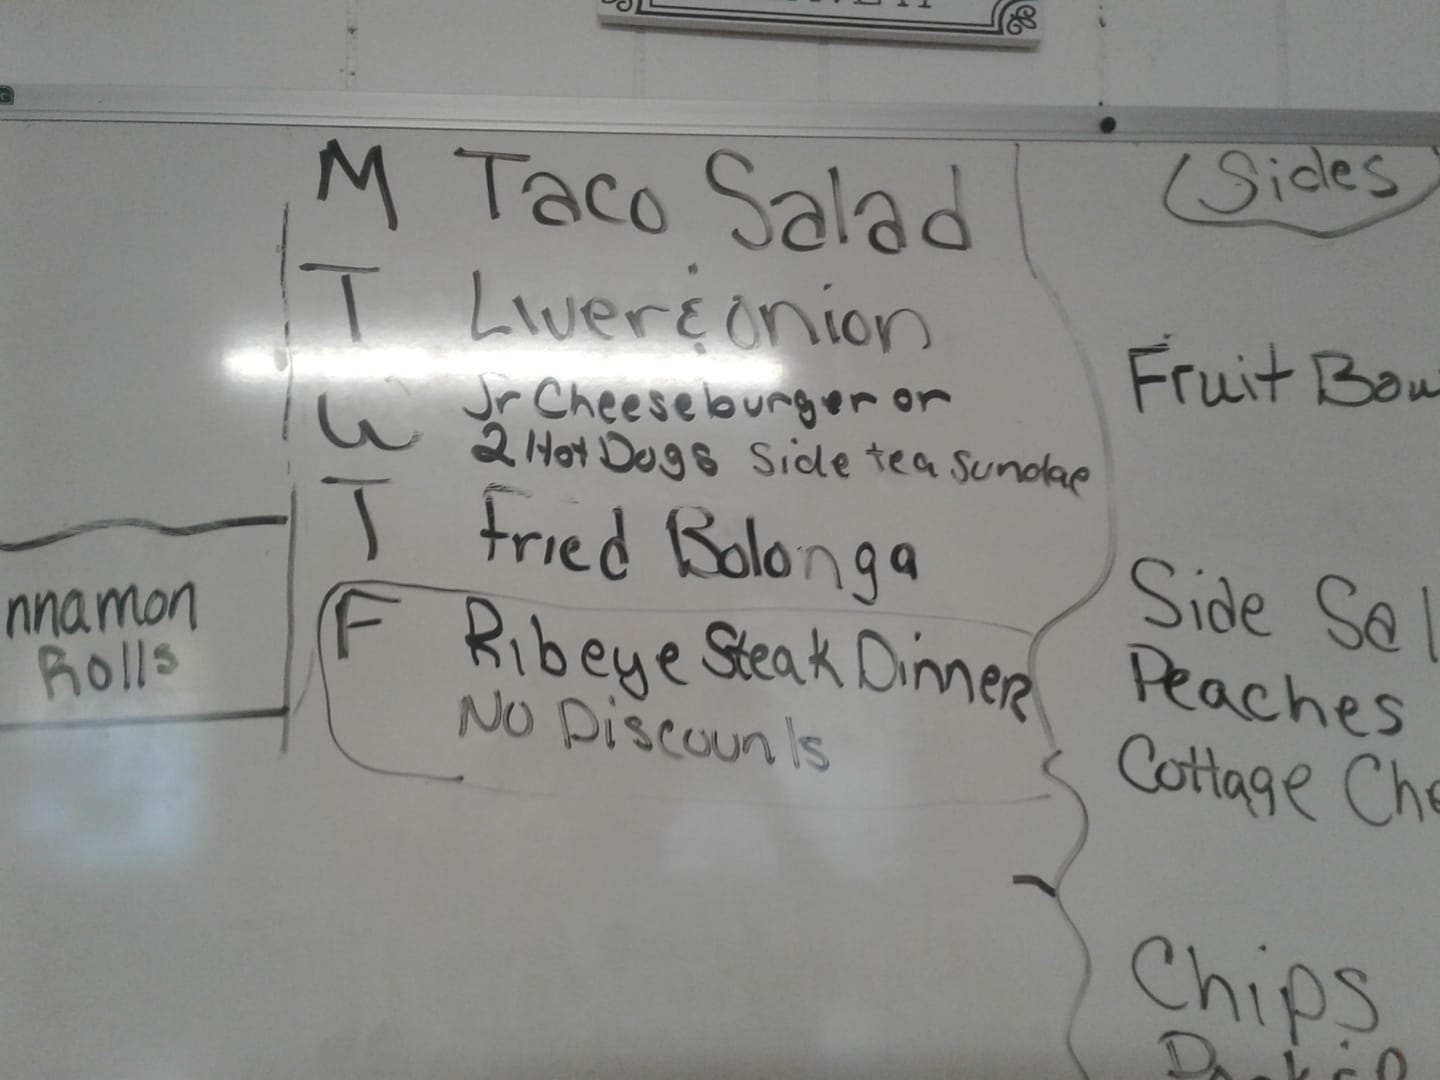 M Taco Salad
T Liver & onion
W Jr Cheeseburger or
2 Hot Dogs Side tea Sundae
T Fried Bolonga
F Ribeye Steak Dinner
No Discounts
nnamon
Rolls
Sides
Fruit Bow
Side Sal
Peaches
Cottage Che
Chips